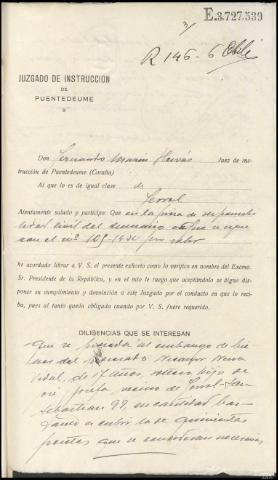 E.3.727.539
R 146-6
JUZGADO DE INSTRUCCION
DE
PUENTEDEUME
Don Fernando Marin Hervás Juez de ins-
trucción de Puentedeume (Coruña)
Al que lo es de igual clase de
Ferrol
Atentamente saludo y participo: Que en la pieza de responsabi-
lidad civil del sumario
con el nº 105-1934 por robo
he acordado librar a V. S. el presente exhorto como lo verifico en nombre del Excmo.
Sr. Presidente de la República, y en el mío le ruego que aceptándolo se sirva dis-
poner su cumplimiento y devolución a este Juzgado por el conducto en que lo re-
ciba, pues al tanto quedo obligado cuando por V. S. fuere requerido.
DILIGENCIAS QUE SE INTERESAN
Que se proceda al embargo de bie-
nes del
Vidal, de 17 años, hijo de
José y Josefa, vecino de Ferrol-San
Sebastian 99, en cantidad bas-
tante a cubrir la de quinientas
pesetas que se consideran necesarias